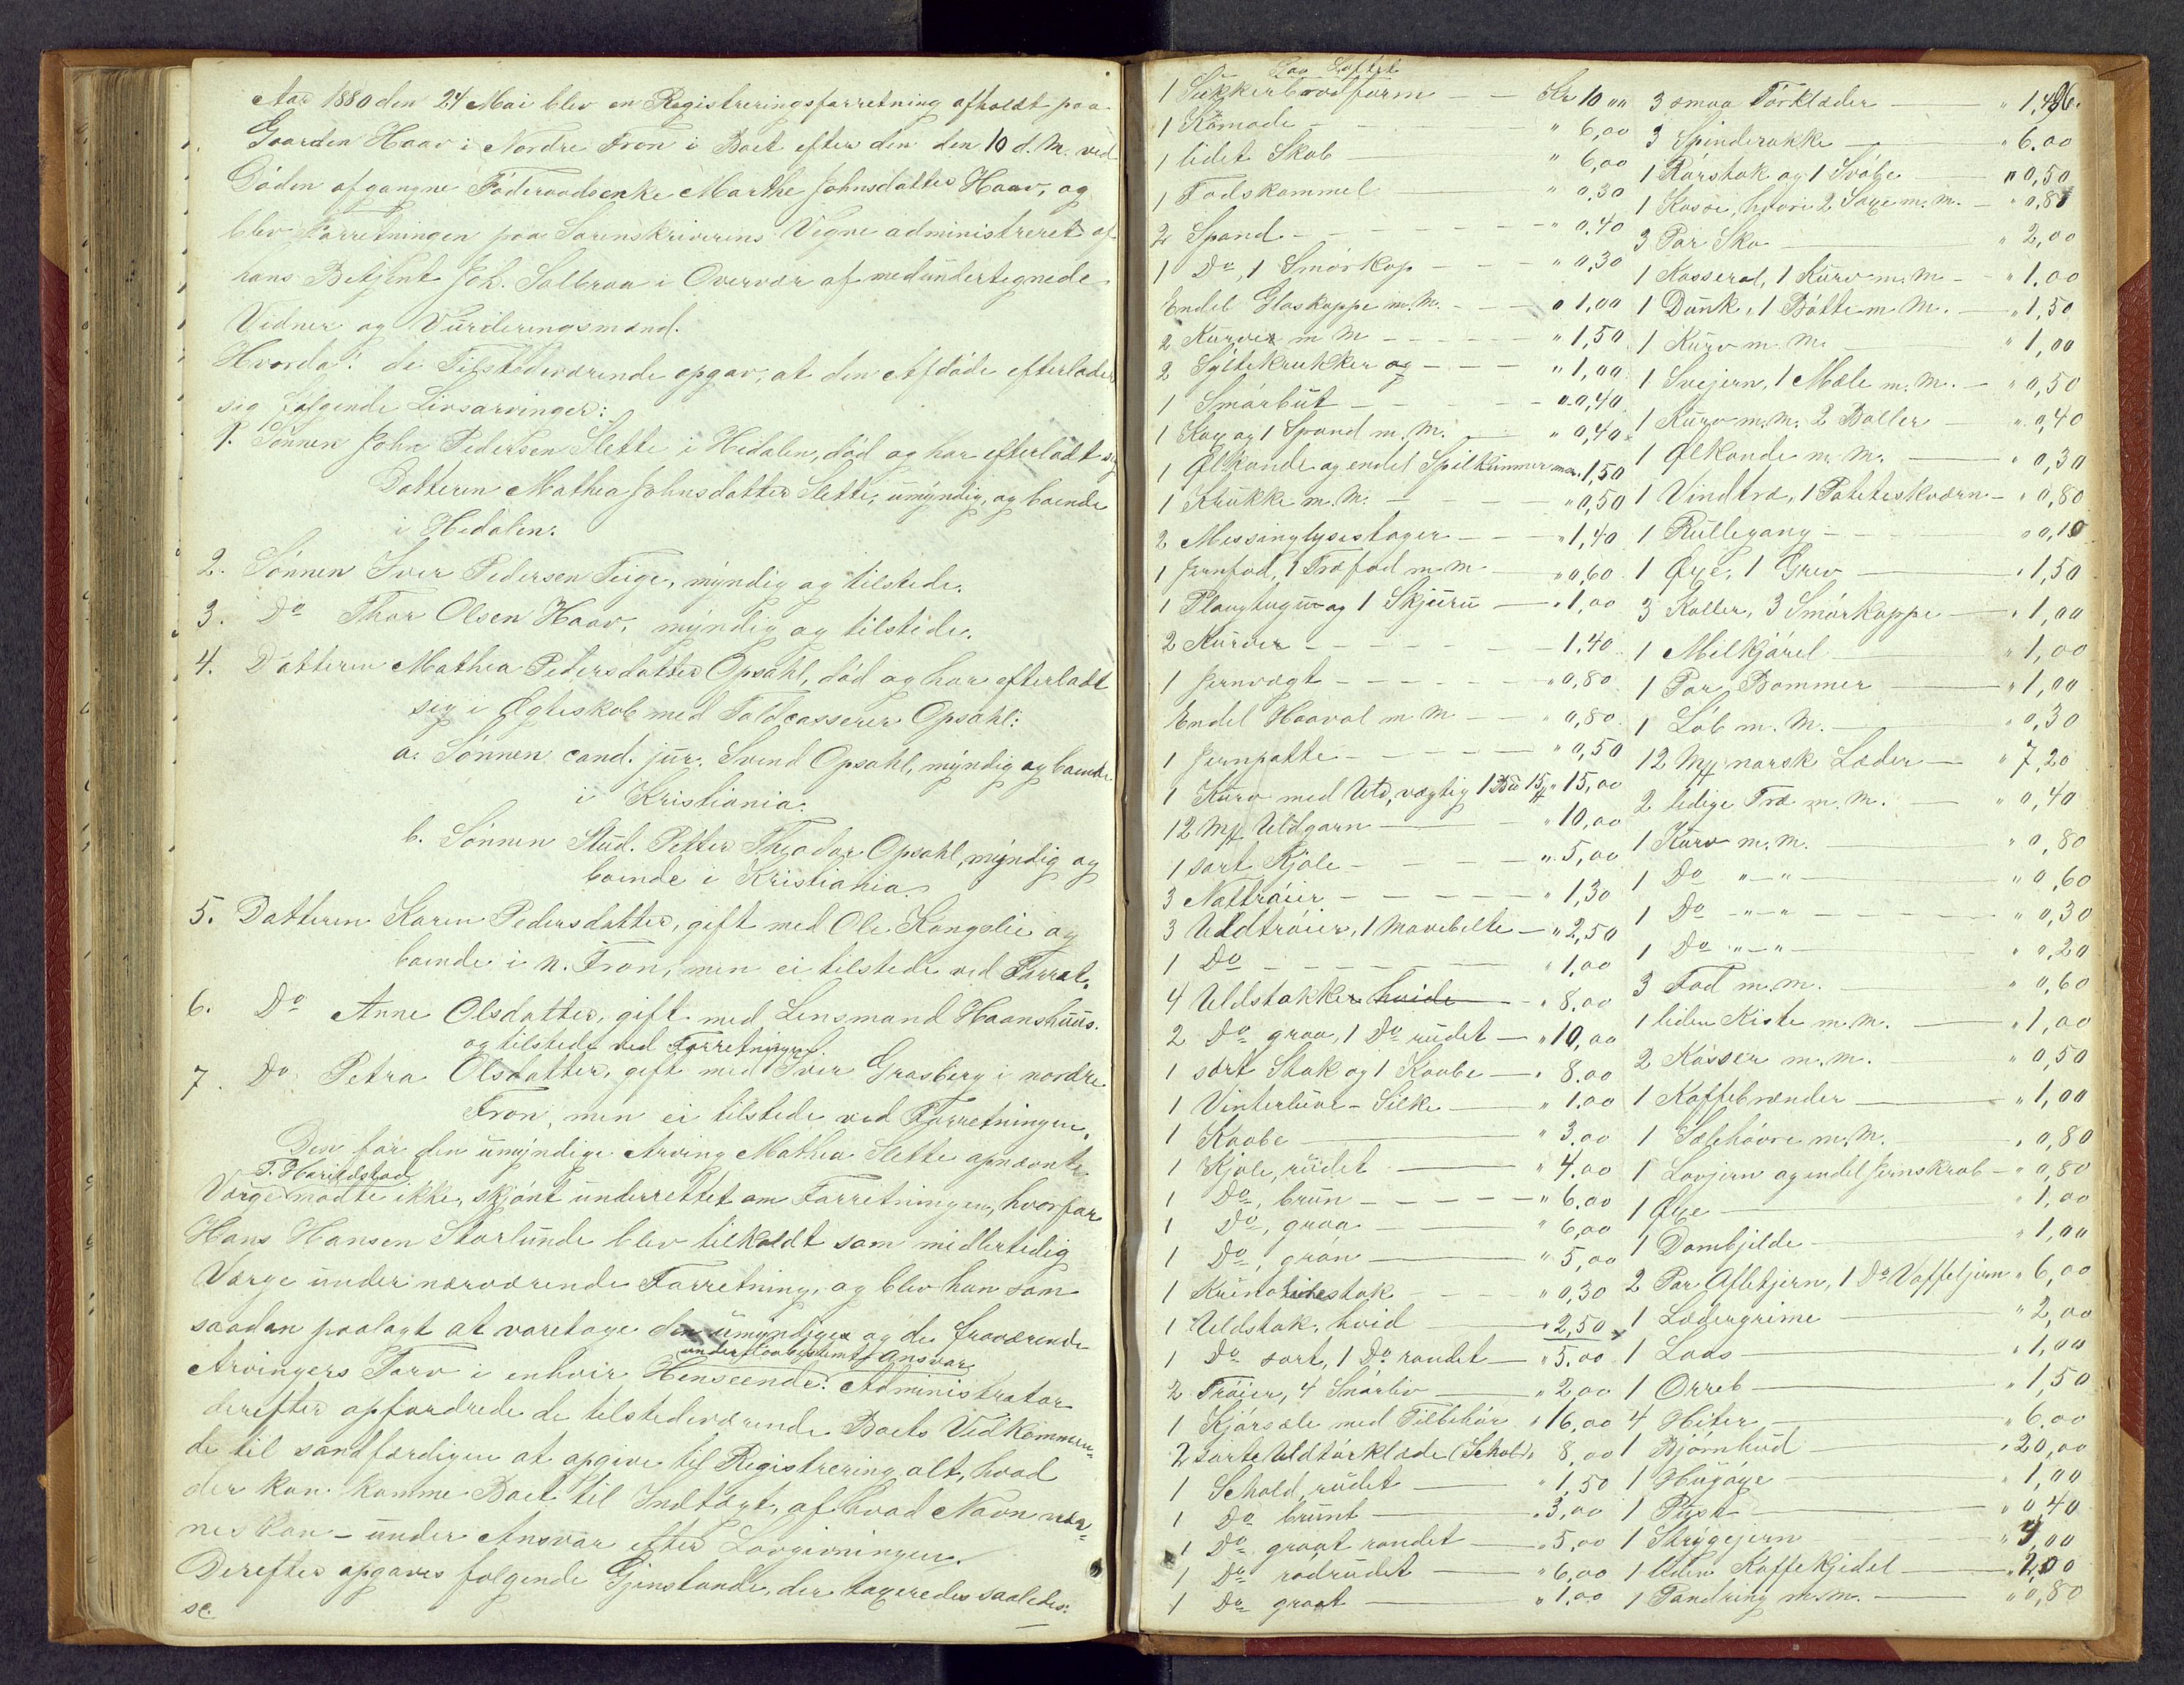 Aar 1880 den 24 Mai blev en Registreringsforretning afholdt paa
Gaarden Haav i Nordre Fron i Boet efter den den 10 d. M. ved
Døden afgangne Føderaadsenke Marthe Johnsdatter Haav, og
blev Forretningen paa Sorenskriverens Vegne administreret af
hans Betjent Joh. Solbraa i Overvær af medundertegnede
Vidner og Vurderingsmænd.
Hvorda: de Tilstedeværende opgav, at den Afdøde efterlader
sig følgende Livsarvinger:
1. Sønnen John Pedersen Slette i Hedalen, død og har efterladt sig
Datteren Mathea Johnsdatter Slette, umyndig, og boende
i Hedalen.
2. Sønnen Iver Pedersen Teige, myndig og tilstede.
3. Do Thor Olsen Haav, myndig og tilstede.
4. Datteren Mathea Pedersdatter Opsahl, død og har efterladt
sig i Ægteskab med Toldcasserer Opsahl:
a. Sønnen cand. jur. Svend Opsahl, myndig og boende
i Kristiania.
b. Sønnen Stud. Petter Theodor Opsahl, myndig og
boende i Kristiania
5. Datteren Karen Pedersdatter, gift med Ole Kongslie og
boende i N. Fron, men ei tilstede ved Forret.
6. Do Anne Olsdatter, gift med Lensmand Haanshuus.
og tilstede ved Forretningen.
7. Do Petra Olsdatter, gift med Iver Grosberg i nordre
Fron, men ei tilstede ved Forretningen.
Den for den umyndige Arving Mathea Slette opnævnte
T. Harildstad
Værge mødte ikke, skjønt underrettet om Forretningen, hvorfor
Hans Hansen Storlunde blev tilkaldt som midlertidig
Værge under nærværende Forretning, og blev han som
saadan paalagt at varetage den umyndiges og de fraværende
under lovbestemt Ansvar.
Arvingers Tarv i enhver Henseende. Administrator
derefter opfordrede de tilstedeværende Boets Vedkommen-
de til sandfærdigen at opgive til Registrering alt, hvad
der kan komme Boet til Indtægt, af hvad Navn næv-
nes kan - under Ansvar efter Lovgivningen.
Derefter opgaves følgende Gjenstande, der taxeredes saaledes:
Paa Loftet
1 Sukkerbrødform Kr 10 00
1 Komode " 6,00
1 lidet Skab " 6,00
1 Fodskammel " 0,30
2 Spand " 0,40
1 Do, 1 Smørkop " 0,30
Endel Glaskoppe m. M. " 1,00
2 Kurver m M " 1,50
2 Syltekrukker og " 1,00
1 Smørbut " 0,40
1 Kag og 1 Spand m. M. " 0,40
1 Ølkande og endel Spilkummer m.m. 1,50
1 Krukke m. M. " 0,50
2 Messinglysestager " 1,40
1 Jernfod, 1 Træfad m. M " 0,60
1 Plougtug og 1 Skjuru " 1,00
2 Kurver 1,40
1 Jernvægt " 0,80
Endel Haaval m. M " 0,80
1 Jernpotte " 0,50
1 Kurv med Uld, vægtig 15 " 15,00
12 Uldgarn " 10,00
1 sort Kjole " 5,00
3 Nattrøier " 1,30
3 Uldtrøier, 1 Mavebelte " 2,50
1 Do " 1,00
4 Uldstakker hvide " 8,00
2 Do graa, 1 Do rudet " 10,00
1 sort Stak og 1 Kaabe " 8.00
1 Vinterluve - Silke " 1.00
1 Kaabe " 3.00
1 Kjole, rudet " 4.00
1 Do, brun " 6.00
1 Do, graa " 6,00
1 Do, grøn " 5,00
1 Krinolinestak " 0,30
1 Uldstak, hvid " 2,50
1 Do sort, 1 Do randet " 5.00
2 Trøier, 4 Snørliv " 2,00
1 Kjørsæle med Tilbehør " 16,00
2 sorte Uldtørklæde (Schol) 8,00
1 Schold, rudet " 1,50
1 Do brunt " 3,00
1 Do graat randet " 5,00
1 Do rødrudet " 6,00
1 Do graat " 1.00
3 smaa Tørklæder
3 Spinderokke " 6.00
1 Rørstok og 1 Svøbe " 0,50
1 Kasse, hvori 2 Sage m. m.
3 Par Sko " 2,00
1 Kasserol, 1 Kurv m. m " 1.00
1 Dunk, 1 Bøtte m M. " 1,50
1 Kurv m. M. " 1,00
1 Svejern, 1 Mæle m. M. " 0,50
1 Kurv m.m. 2 Boller " 0,40
1 Ølkande m. M. " 0,30
1 Vindtræ, 1 Poteteskværn " 0,80
1 Rullegang
1 Øxe, 1 Grev " 1,50
3 Koller, 3 Smørkoppe " 1,00
1 Melkjørel " 1,00
1 Par Bommer " 1,00
1 Løb m. M. " 0,30
12 norsk Læder " 7,20
2 ledige Træ m. M. " 0,40
1 Kurv m. m. " 0,80
1 Do " - " " 0,60
1 Do " - " " 0,30
1 Do " - " " 0,20
3 Fad m. m. " 0,60
1 liden Kiste m. m. " 1,00
2 Kasser m. m. " 0,50
1 Kaffebrænder " 1,00
1 Sælehøvre m. M. " 0,80
1 Lovjern og endel Jernskrab " 0,80
1 Øxe 1,00
1 Dombjelde " 1,00
2 Par Afletjern, 1 Do Vaffeljern " 6,00
1 Lædergrime " 2,00
1 Laas " 1,00
1 Orreb " 1,50
4 Hiter " 6.00
1 Bjørnhud " 20,00
1 Hugøxe " 1,00
1 Pust " 0,40
1 Strygejern
1 liden Kaffekjedel 2,00
1 Pandring m. m. " 0,80